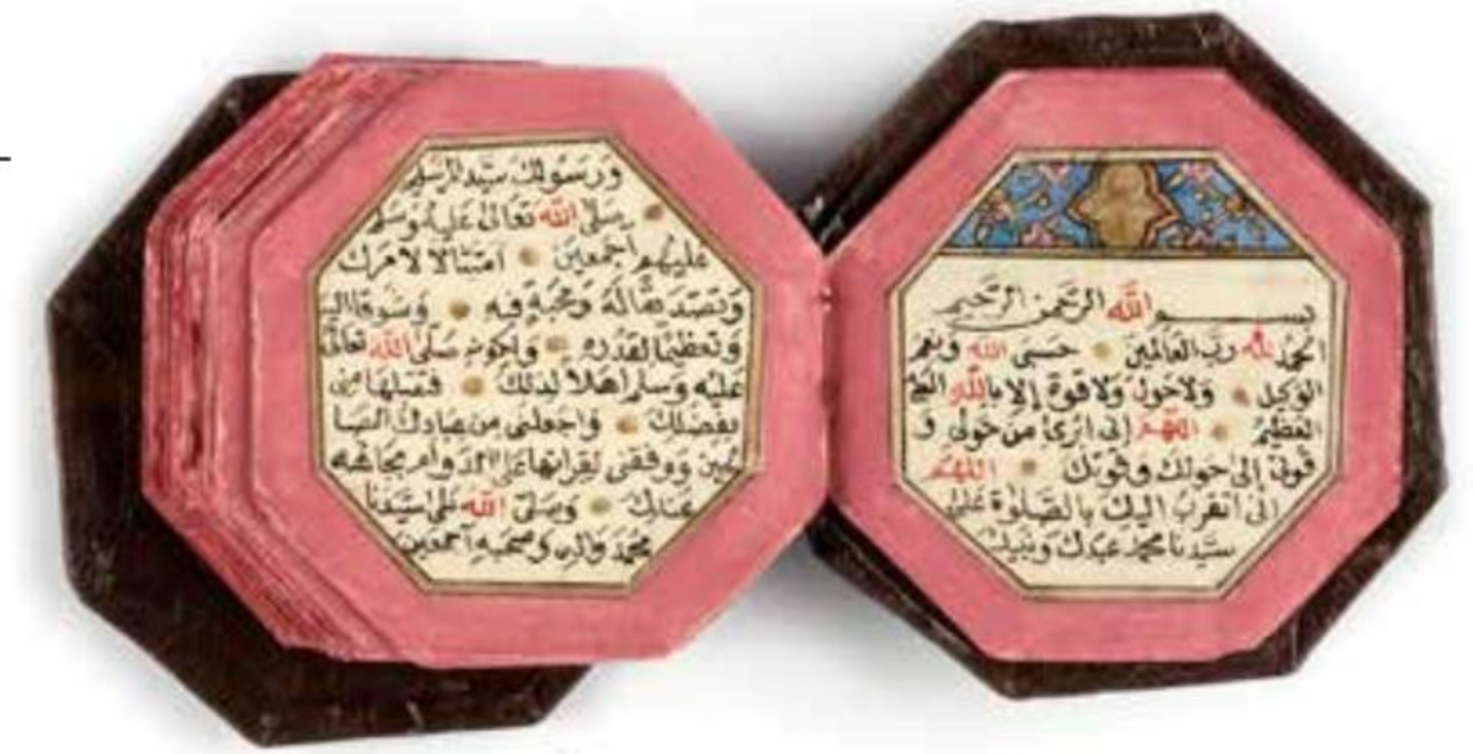 بسم الله الرحمن الرحيم
الحمد لله رب العالمين حسبى الله ونعم
الوكيل ولاحول ولا قوة إلا بالله العلى
العظيم اللهم إنى ابرئ من حولى و
قوتى إلى حولك وقوتك اللهم
إنى اتقرب اليك بالصلوة على
سيدنا محمد عبدك ونبيك
ورسولك سيد المرسلين
صلى الله تعالى عليه وسلم
عليهم اجمعين امتثالا لامرك
وتصديقا له ومحبة فيه وشوقا اليه
وتعظيما لقدره ولكونه صلى الله تعالى
عليه وسلم اهلا لذلك فتقبلها منى
بفضلك واجعلنى من عبادك الصا
لحين ووفقنى لقراتها على الدوام بجاهه
عندك وصلى الله على سيدنا
محمد واله وصحبه اجمعين